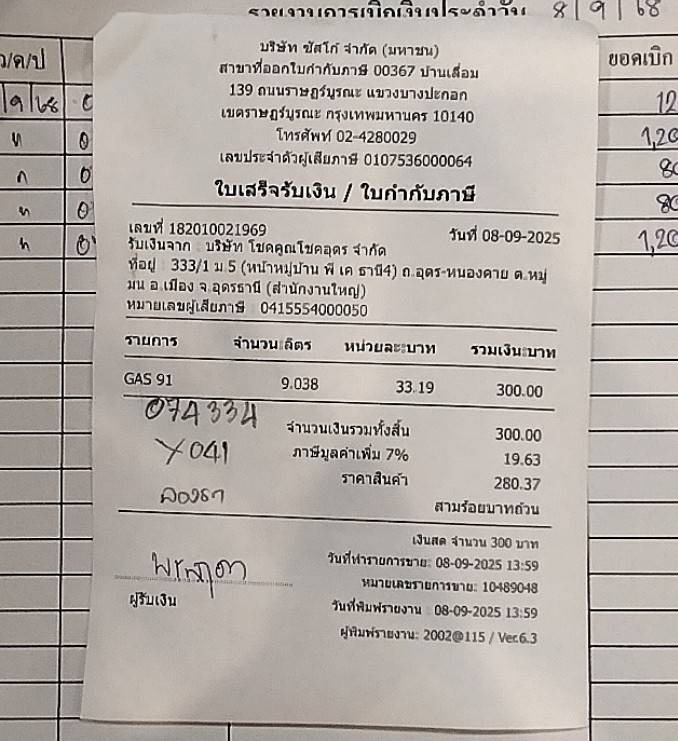 รายงานการเบิกเงินประจำวัน 8/9/68
ว/ด/ป
ยอดเบิก
บริษัท ซัสโก้ จำกัด (มหาชน)
สาขาที่ออกใบกำกับภาษี 00367 บ้านเลื่อม
139 ถนนราษฎร์บูรณะ แขวงบางปะกอก
เขตราษฎร์บูรณะ กรุงเทพมหานคร 10140
โทรศัพท์ 02-4280029
เลขประจำตัวผู้เสียภาษี 0107536000064
ใบเสร็จรับเงิน / ใบกำกับภาษี
เลขที่ 182010021969 วันที่ 08-09-2025
รับเงินจาก บริษัท โชคคูณโชคอุดร จำกัด
ที่อยู่ 333/1 ม.5 (หน้าหมู่บ้าน พี เค ธานี4) ถ.อุดร-หนองคาย ต.หมู
มน อ.เมือง จ.อุดรธานี (สำนักงานใหญ่)
หมายเลขผู้เสียภาษี 0415554000050
รายการ จำนวน:ลิตร หน่วยละ:บาท รวมเงิน:บาท
GAS 91 9.038 33.19 300.00
074334
จำนวนเงินรวมทั้งสิ้น 300.00
Y041
ภาษีมูลค่าเพิ่ม 7% 19.63
ราคาสินค้า 280.37
สามร้อยบาทถ้วน
เงินสด จำนวน 300 บาท
วันที่ทำรายการขาย: 08-09-2025 13:59
หมายเลขรายการขาย: 10489048
ผู้รับเงิน
วันที่พิมพ์รายงาน : 08-09-2025 13:59
ผู้พิมพ์รายงาน: 2002@115 / Ver.6.3